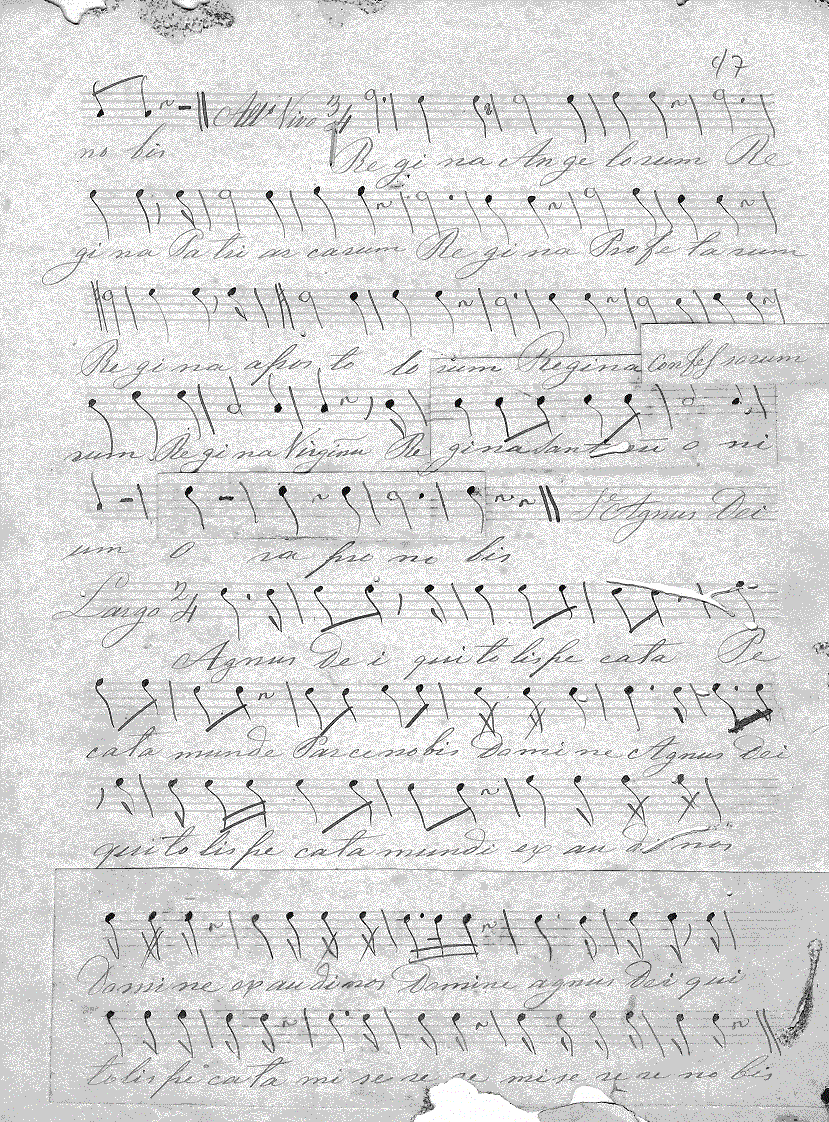 47
All° Vivo 3/4
no bis Re gi na Ange lorum Re
gi na Pa tri ar carum Re gi na Profe ta rum
Re gi na apos to lo rum Regina confessorum
rum Re gi na Virginu Re gina sant eu o ni
Agnus Dei
um O ra pro no bis
Largo 2/4
Agnus De i qui to lis pe cata Pe
cata munde Parce nobis Domi ne Agnus Dei
qui to lis pe cata mundi ex au di nos
Domi ne exaudinos Domine agnus Dei qui
tolis pe cata mi se re re mise re re no bis